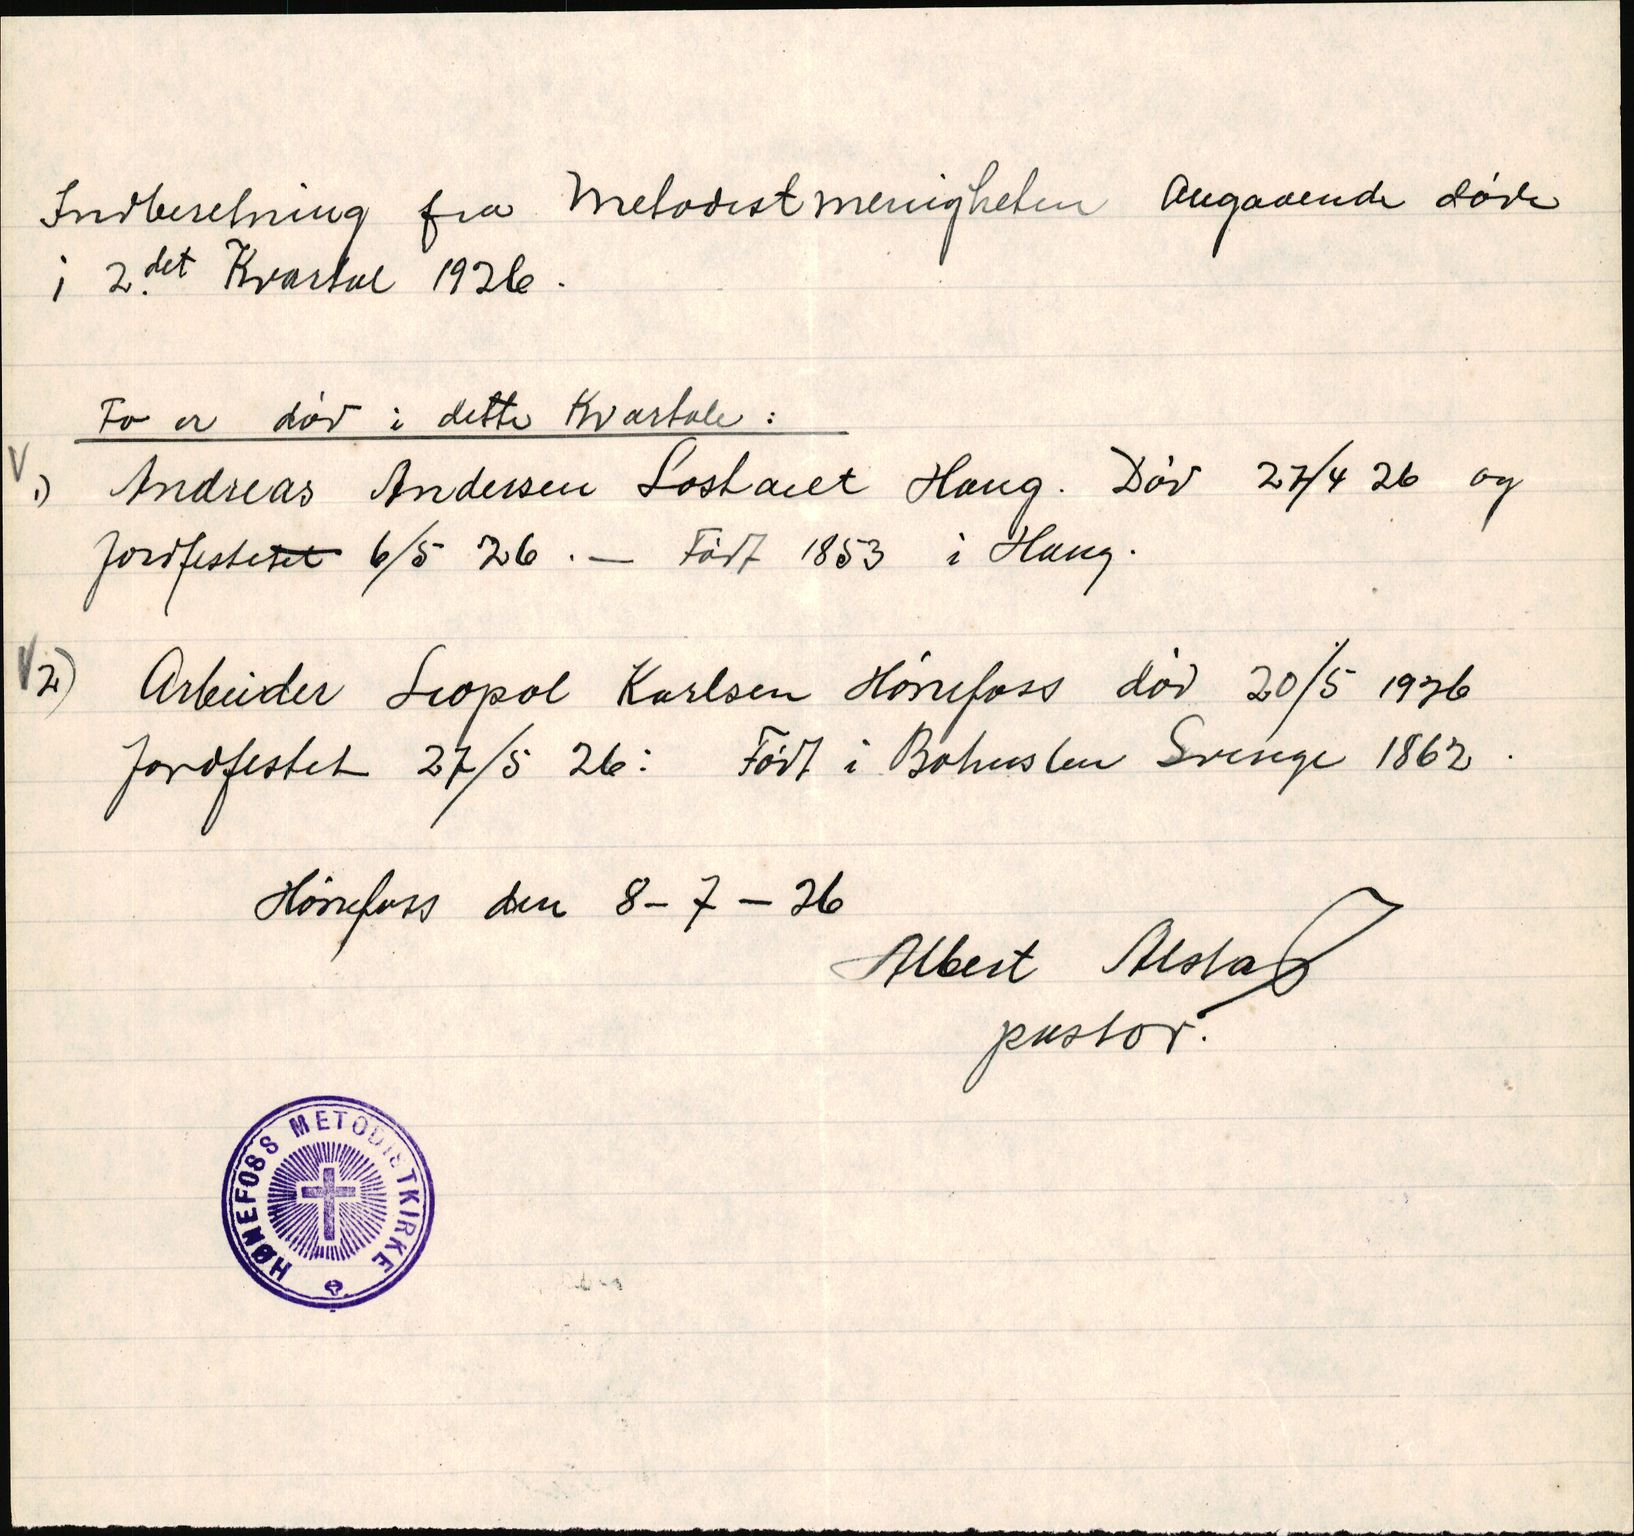 Indberetning fra Metodistmenigheten Angaaende døde
i 2.det Kvartal 1926.
To er død i dette Kvartale:
V 1) Andreas Andersen Haug. Død 27/4 26 og
Jordfestetet 6/5 26. — Født 1853 i Haug.
V 2) Arbeider Leopol Karlsen Hønefoss død 20/5 1926
Jordfestet 27/5 26: Født i Bohuslen Sverige 1862.
Hønefoss den 8-7-26
Albert Alstad
pastor.
HØNEFOSS METODISTKIRKE